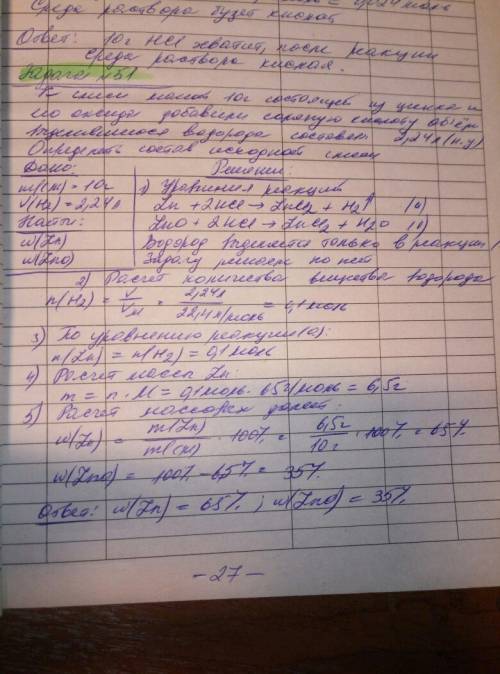 Среда раствора будет кислой
Ответ: 10г HCl хватит, после реакции
среда раствора кислая.
Задача №51
К смеси массой 10г состоящей из цинка и
его оксида добавили соляную кислоту объём
выделившегося водорода составил 2,24л (н.у)
Определить состав исходной смеси
Дано: Решение:
m(см) = 10г 1) Уравнения реакций
V(H₂) = 2,24л Zn + 2HCl → ZnCl₂ + H₂↑ (а)
Найти: ZnO + 2HCl → ZnCl₂ + H₂O
w(Zn) Водород выделяется только в реакции
w(ZnO) Задачу решаем по ней
2) Расчет количества вещества водорода
n(H₂) = V/Vм = 2,24л/22,4л/моль = 0,1 моль
3) По уравнению реакции (а):
n(Zn) = n(H₂) = 0,1 моль
4) Расчет массы Zn:
m = n · M = 0,1 моль · 65г/моль = 6,5г
5) Расчет массовых долей:
w(Zn) = m(Zn)/m(см) · 100% = 6,5г/10г · 100% = 65%
w(ZnO) = 100% - 65% = 35%
Ответ: w(Zn) = 65%; w(ZnO) = 35%
- 27 -